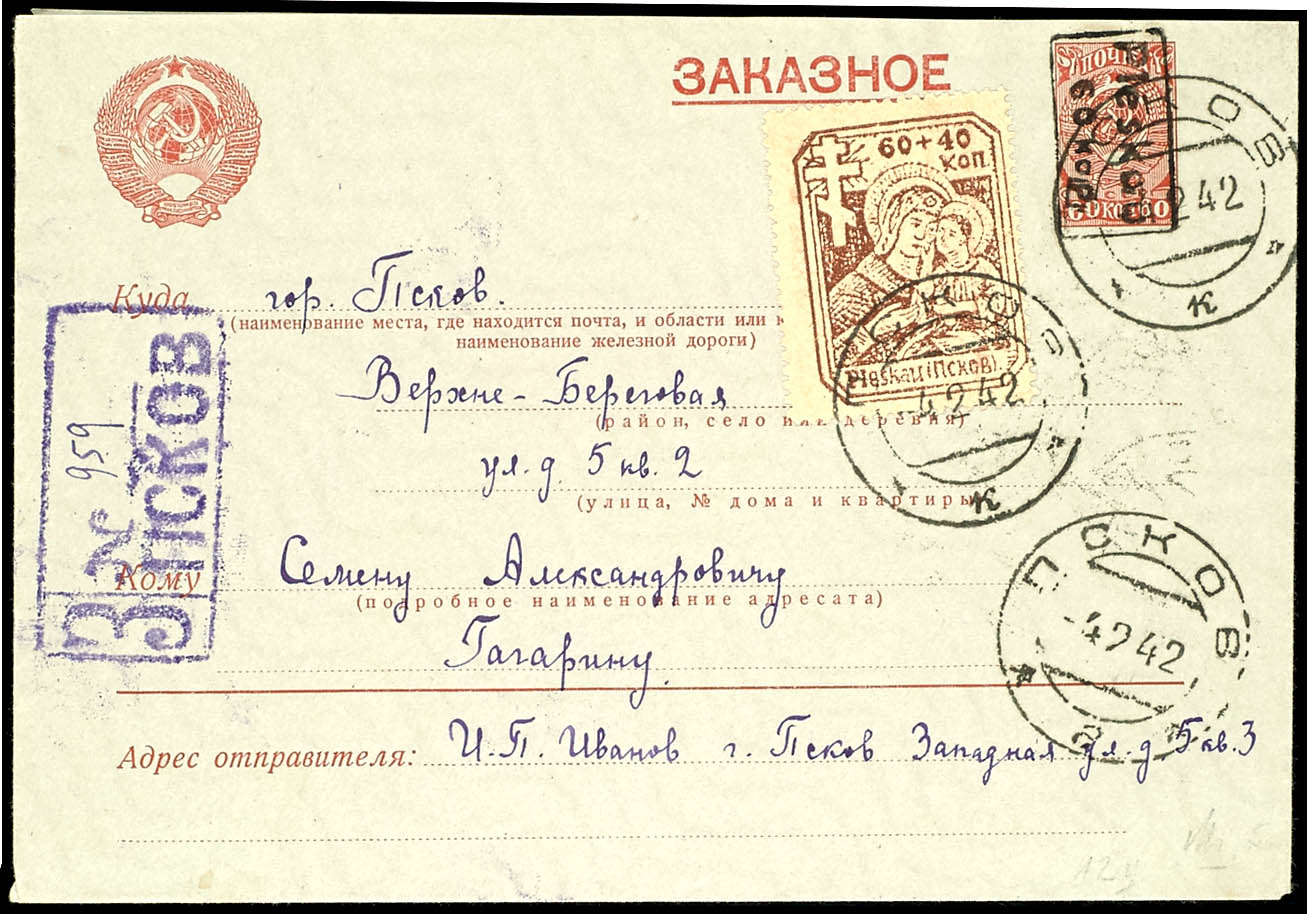 ЗАКАЗНОЕ
ПОЧТА
60 коп. 60
60 коп.
Pleskau
60+40
КОП
Pleskau (Псков).
ПСКОВ
-4 2 42
к
Куда гор. Псков.
(наименование места, где находится почта, и области или
наименование железной дороги)
Верхне-Береговая
(район, село или деревня)
ул. д 5 кв. 2
(улица, № дома и квартиры
Кому Семену Александровичу
(подробное наименование адресата)
Гагарину
З ПСКОВ
№ 959
ПСКОВ
-4 2 42
Адрес отправителя: И. П. Иванов г. Псков Западная ул. д 5 кв. 3